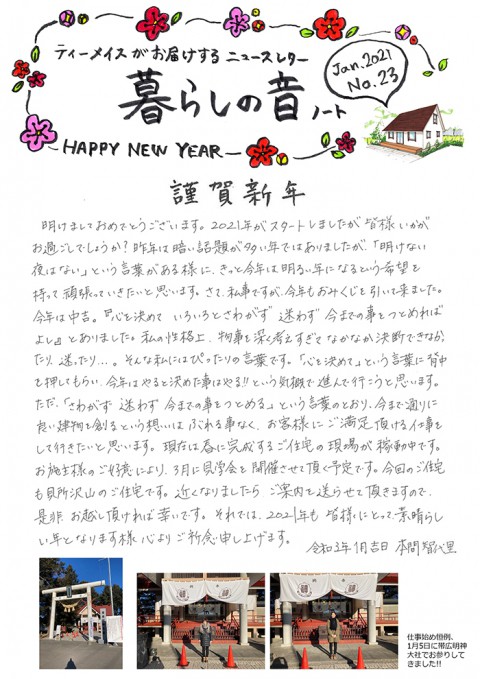 ティーメイスがお届けするニュースレター
Jan.2021
No.23
暮らしの音ノート
HAPPY NEW YEAR
謹賀新年
明けましておめでとうございます。2021年がスタートしましたが皆様いかが
お過ごしでしょうか?昨年は暗い話題が多い年ではありましたが、「明けない
夜はない」という言葉がある様に、きっと今年は明るい年になるという希望を
持って頑張っていきたいと思います。さて、私事ですが、今年もおみくじを引いて来ました。
今年は中吉。『心を決めて いろいろとさわがず 迷わず 今までの事をつとめれば
よし』とありました。私の性格上、物事を深く考えすぎてなかなか決断できなかっ
たり、迷ったり…。そんな私にはぴったりの言葉です。「心を決めて」という言葉に背中
を押してもらい、今年はやると決めた事はやる!!という気概で進んで行こうと思います。
ただ、「さわがず 迷わず 今までの事をつとめる」という言葉のとおり、今まで通りに
良い建物を創るという想いはぶれる事なく、お客様にご満足頂ける仕事を
して行きたいと思います。現在は春に完成するご住宅の現場が稼動中です。
お施主様のご好意により、3月に見学会を開催させて頂く予定です。今回のご住宅
も見所沢山のご住宅です。近くなりましたらご案内を送らせて頂きますので、
是非、お越し頂ければ幸いです。それでは、2021年も皆様にとって素晴らし
い年となります様 心よりご祈念申し上げます。
令和3年1月吉日 本間智恵里
仕事始め恒例、
1月5日に帯広明神
大社でお参りして
きました!!